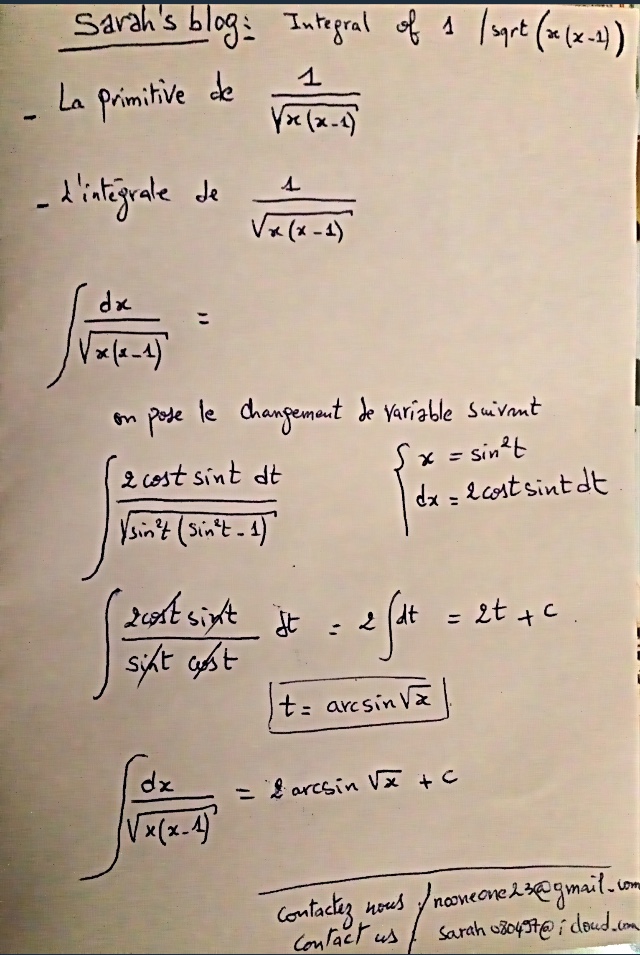 Sarah's blog: Integral of 1 / sqrt (x(x-1))
- La primitive de 1/√(x(x-1))
- L'intégrale de 1/√(x(x-1))
∫ dx/√(x(x-1)) =
on pose le changement de variable suivant
∫ 2 cost sint dt/√(sin²t (sin²t - 1))
{ x = sin²t
dx = 2 cost sint dt
∫ 2cost sint/(sint cost) dt = 2 ∫ dt = 2t + c
t = arcsin √x
∫ dx/√(x(x-1)) = 2 arcsin √x + c
contactez nous / nooneone23@gmail.com
contact us / sarah080497@icloud.com